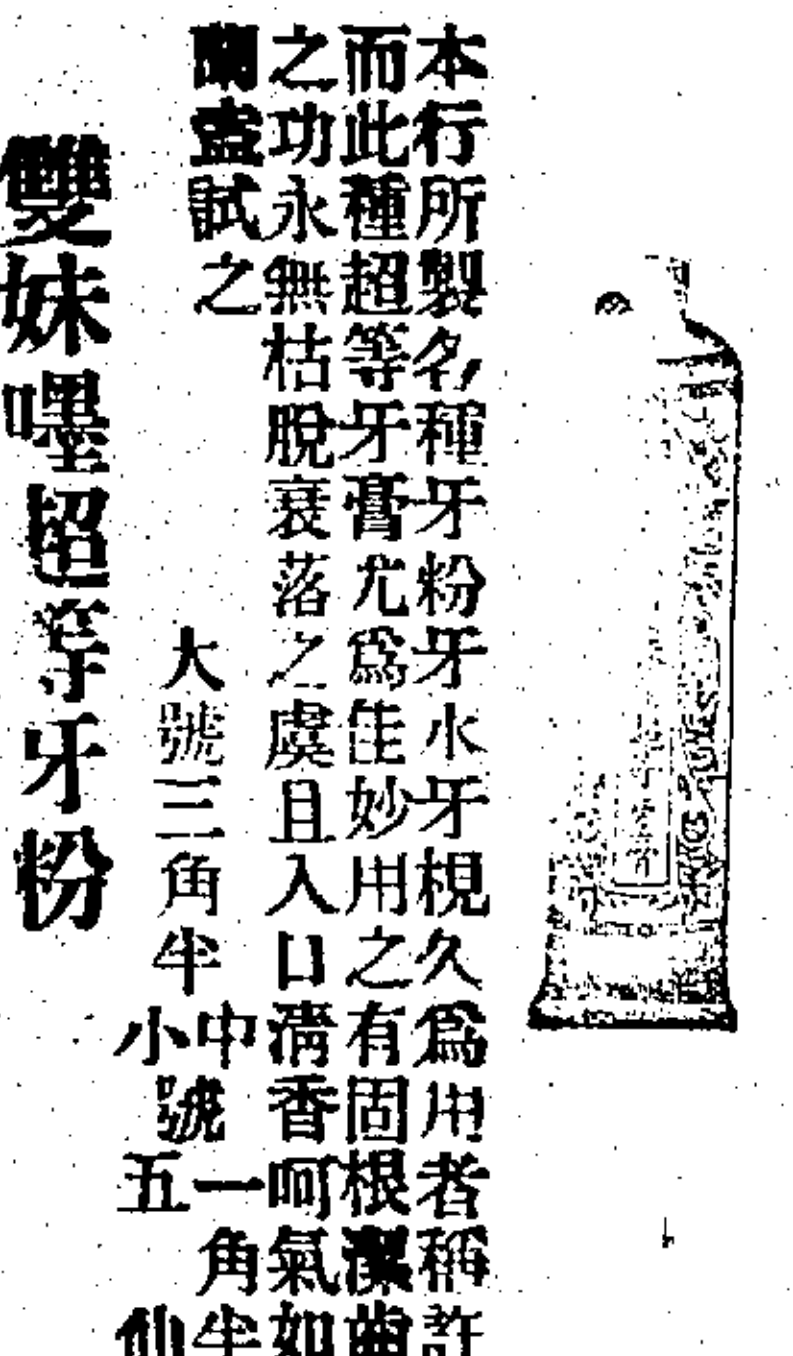 本行所製各種牙粉牙水牙梘久為用者稱許
而此種超等牙膏尤為佳妙用之有固根潔齒
之功永無枯脫衰落之虞且入口清香呵氣如
蘭盍試之
大號三角半
中號一角半
小號五仙
雙妹嚜超等牙粉